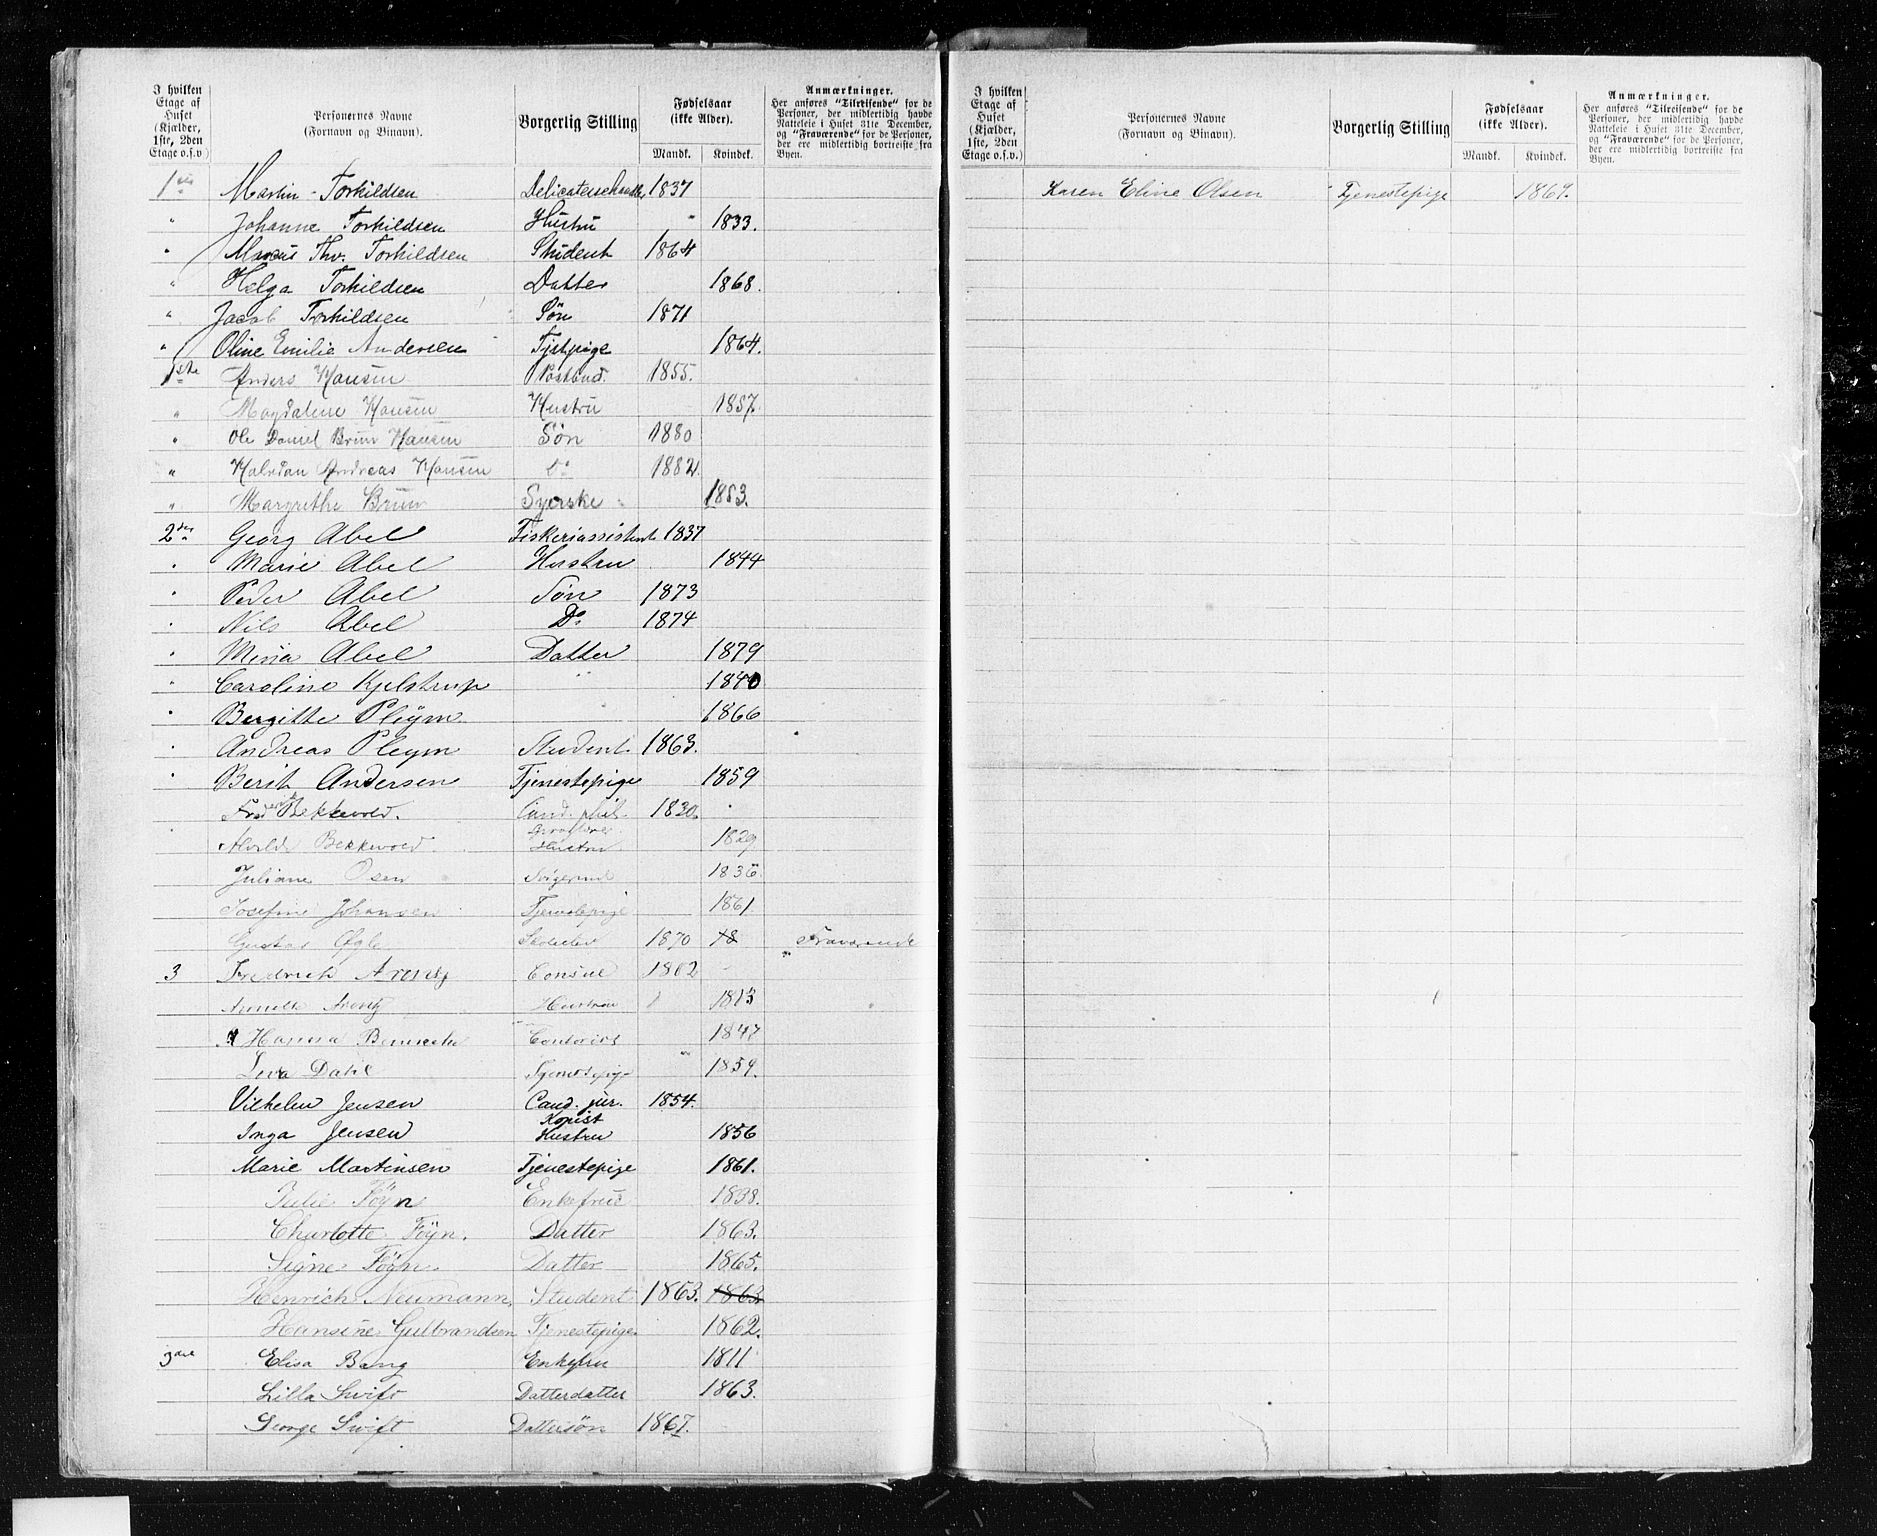 I hvilken Etage af Huset (Kjælder, 1ste, 2den Etage o.s.v.) Personernes Navne (Fornavn og Binavn). Borgerlig Stilling Fødselsaar (ikke Alder). Mandk. Kvindek. Anmærkninger. Her anføres "Tilreisende" for de Personer, der midlertidig havde Natteleie i Huset 31te December, og "Fraværende" for de Personer, der ere midlertidig bortreiste fra Byen.
1ste Martin Torkildsen Delicatessehandler 1837
" Johanne Torkildsen Hustru " 1833.
" Marcus Thv. Torkildsen Student 1864
" Helga Torkildsen Datter 1868.
" Jacob Torkildsen Søn 1871
" Oline Emilie Andersen Tjstpige 1864.
1ste Anders Hansen Postbud. 1855.
" Magdalene Hansen Hustru 1857.
" Ole Daniel Brun Hansen Søn 1880
" Halvdan Andreas Hansen Do 1882
" Margrethe Brun Syerske 1853.
2den Georg Abel Fiskeriassistent 1837
" Marie Abel Hustru 1844
" Peder Abel Søn 1873
" Nils Abel Do 1874
" Mina Abel Datter 1879
" Caroline Kjelstrup " 1840
" Bergitte Pleym 1866
" Andreas Pleym Student 1863.
" Berit Andersen Tjenestepige 1859
Fredrik Bekkevold. Cand. phil. 1830.
Bekkevold. Hustru 1829
Juliane Osen 1836
Josefine Johansen Tjenestepige 1861
Gustav 1870 18 Fraværende
3 Fredrick Arentz Consul 1802
Arentz Hustru 1813
Hanna Contorist 1847
Dahl 1859.
Vilhelm Jensen Cand. jur. Kopist 1854.
Inga Jensen Hustru 1856
Marie Martinsen Tjenestepige 1861.
Julie Föyn Enkefrue 1838.
Charlotte Föyn. Datter 1863.
Signe Föyn. Datter 1865.
Henrich Neumann. Student 1863. 1863.
Hansine Gulbrandsen Tjenestepige 1862.
3die Elisa Bang Enkefru 1811
Lilla Swift Datterdatter 1863.
George Swift Dattersøn 1867.
I hvilken Etage af Huset (Kjælder, 1ste, 2den Etage o.s.v.) Personernes Navne (Fornavn og Binavn). Borgerlig Stilling Fødselsaar (ikke Alder). Mandk. Kvindek. Anmærkninger. Her anføres "Tilreisende" for de Personer, der midlertidig havde Natteleie i Huset 31te December, og "Fraværende" for de Personer, der ere midlertidig bortreiste fra Byen.
Karen Eline Olsen Tjenestepige